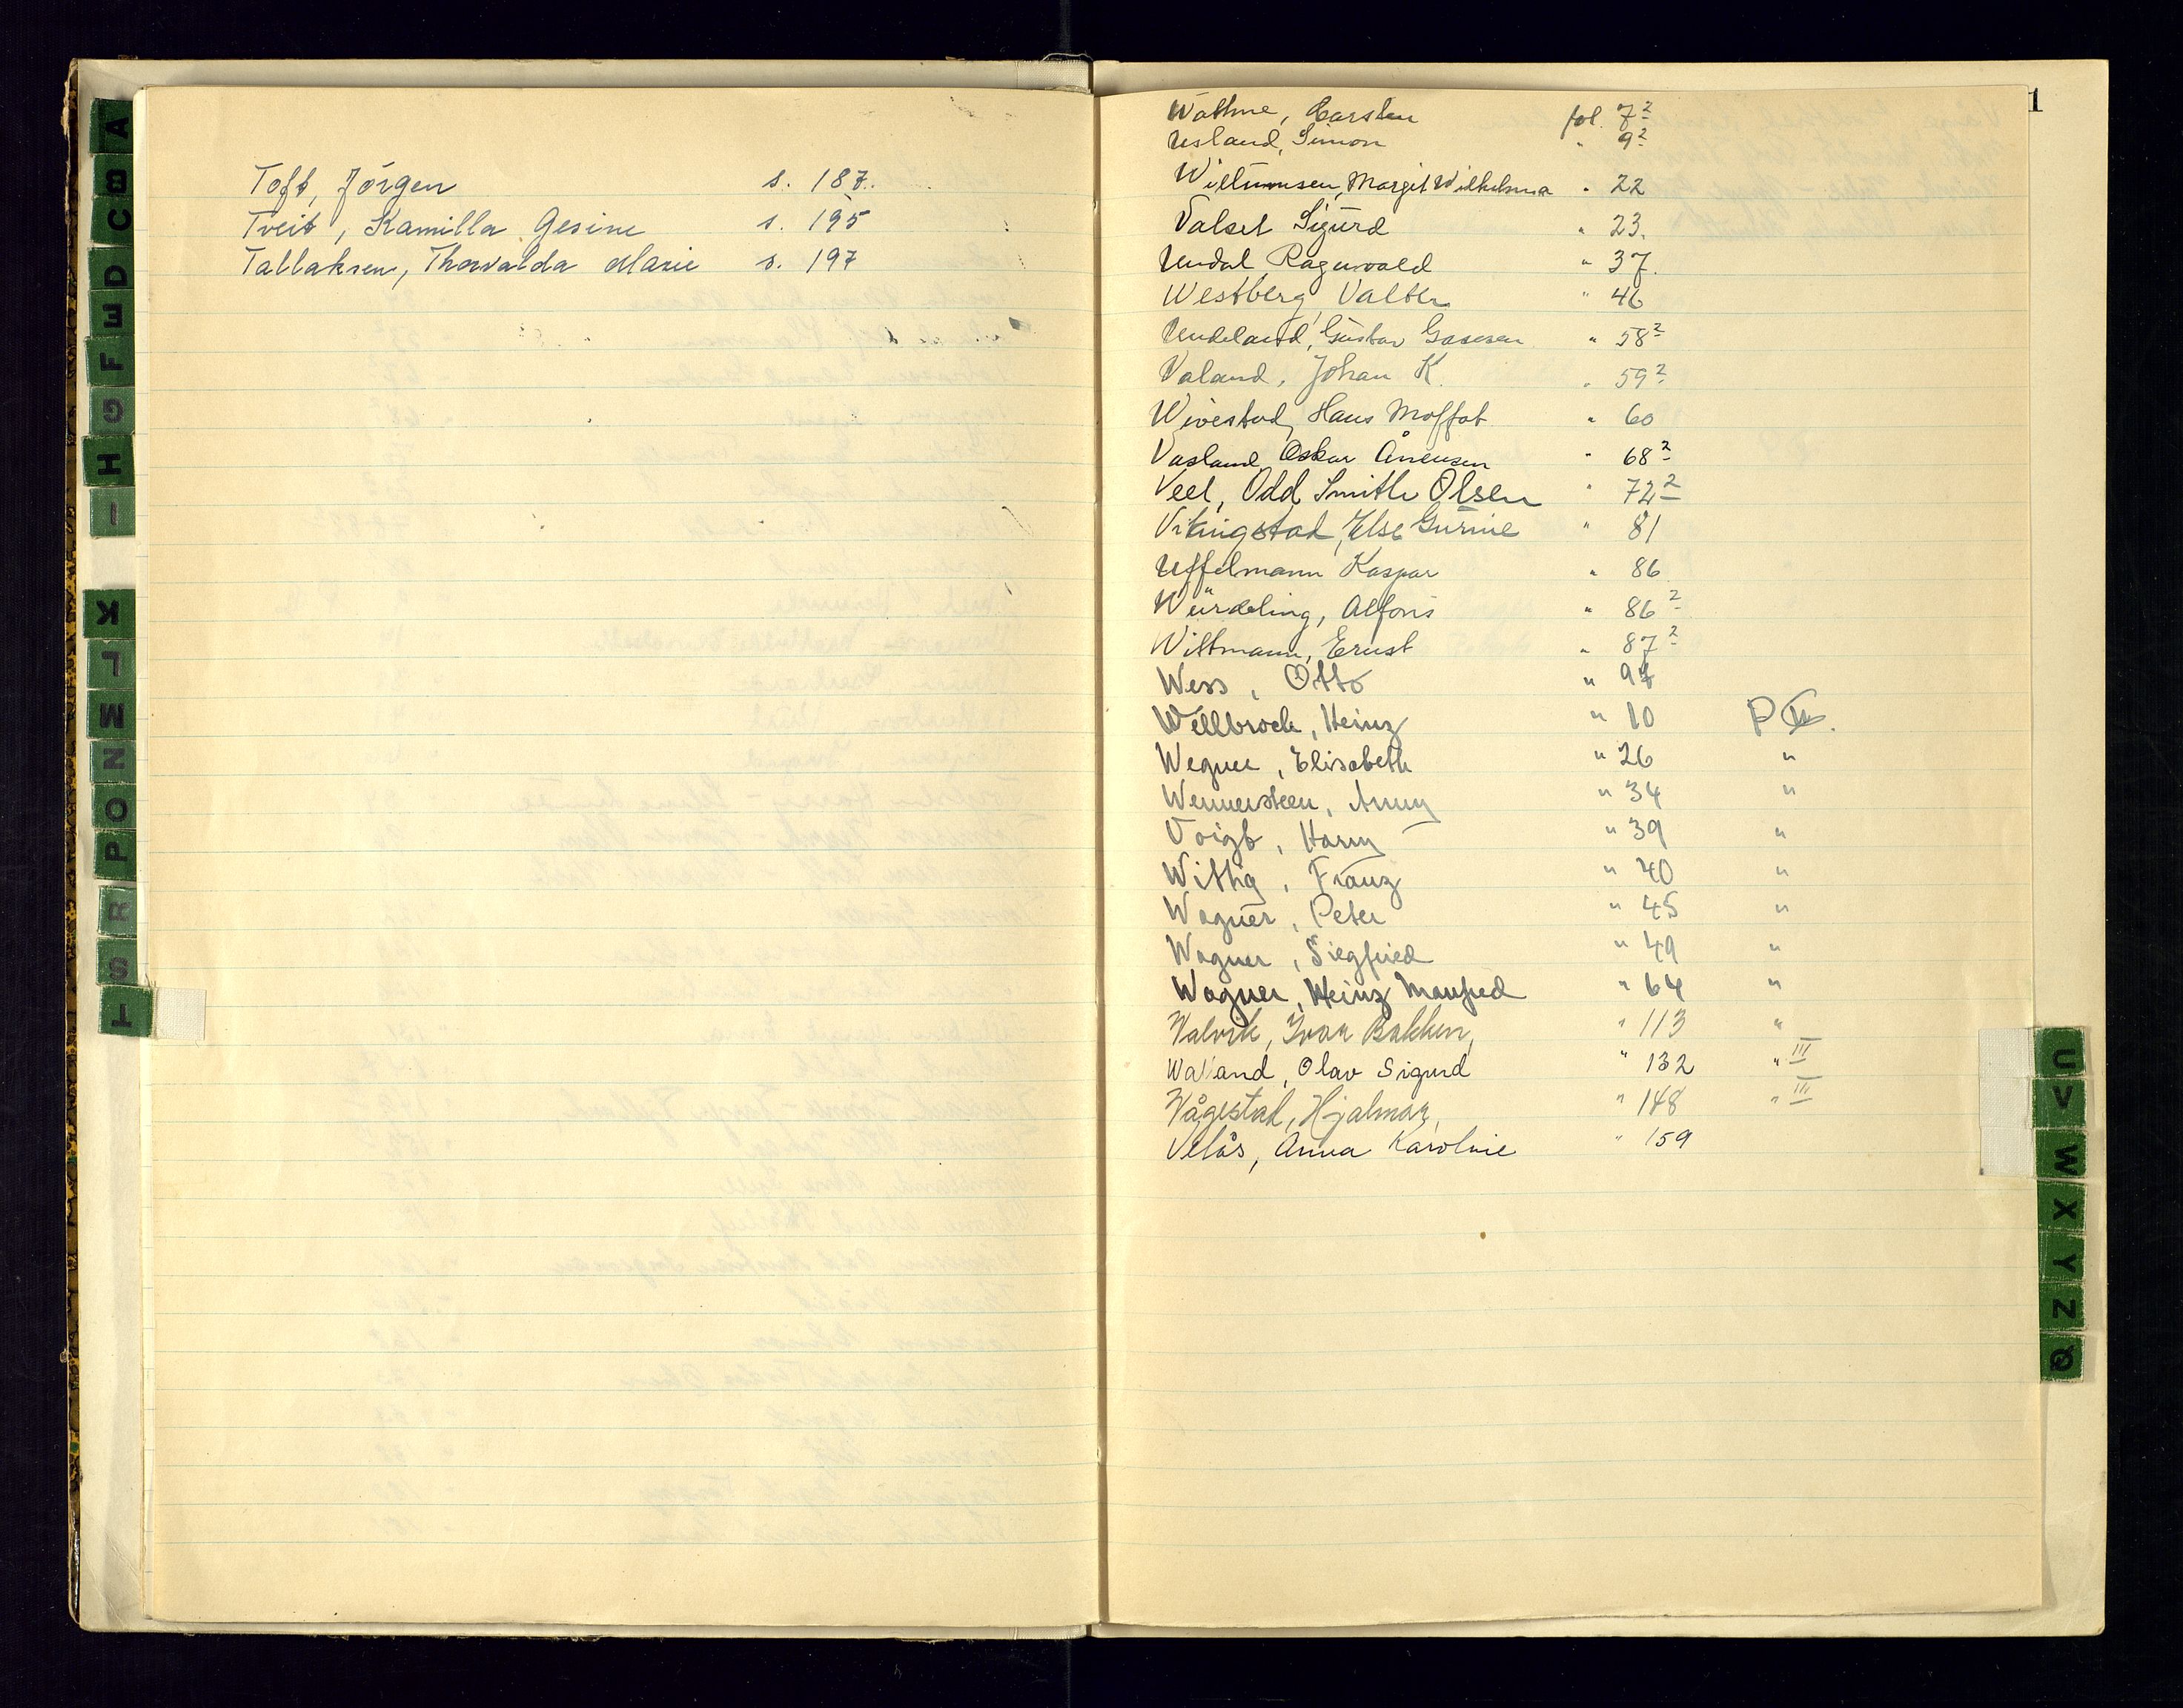 A
B
C
D
E
F
G
H
I
K
L
M
N
O
P
R
S
T
Toft, Jörgen s. 187.
Tveit, Kamilla Gesine s. 195
Tallaksen, Thorvalda Marie s. 197
1
Wathne, Carsten fol. 7²
Usland, Simon " 9²
Willumsen, Margit Wilhelmina " 22
Valset Sigurd " 23.
Undal Ragnvald " 37.
Westberg, Valter " 46
Undeland, Gustav Gasesen " 58²
Valand, Johan K. " 59²
Wivestad, Hans Moffat " 60
Vasland Oskar Ånensen " 68²
Veel, Odd Smith Olsen " 72²
Vikingstad, Else Gurine " 81
Uffelmann Kaspar " 86
Würdeling, Alfons " 86²
Wittmann, Ernst " 87²
Wess, Otto "
Wellbrock, Heinz " 10 P
Wegner, Elisabeth " 26 "
Wennersteen, Anny " 34 "
Voigt, Harry " 39 "
Wittig, Franz " 40 "
Wagner, Peter " 45 "
Wagner, Siegfried " 49 "
Wagner, Heinz Manfred " 64 "
Valvik, Ivar Bakken, " 113 "
Waland, Olav Sigurd " 132 " III
Vågestad, Hjalmar, " 148 " III
Velås, Anna Karoline " 159
U
V
W
X
Y
Z
Q